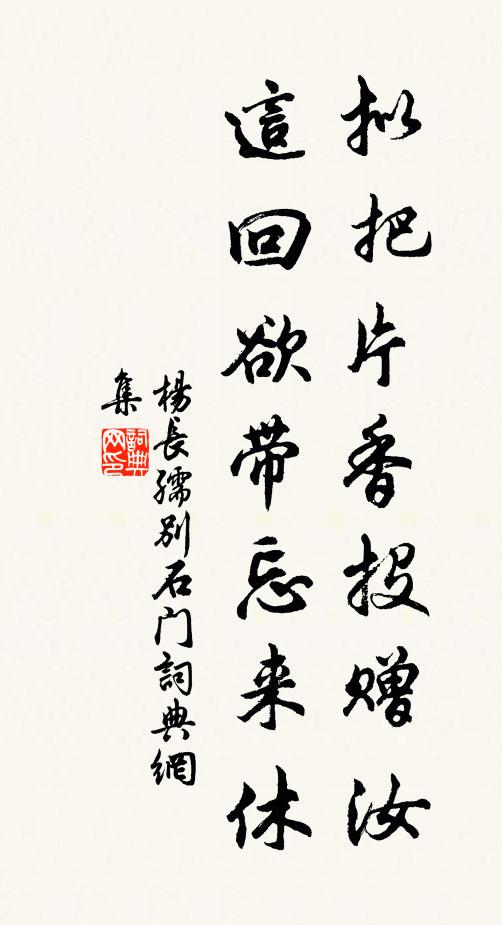 拟把片香投赠汝
這回欲带忘来休
楊長孺别石门詞典網
集
詞典网印